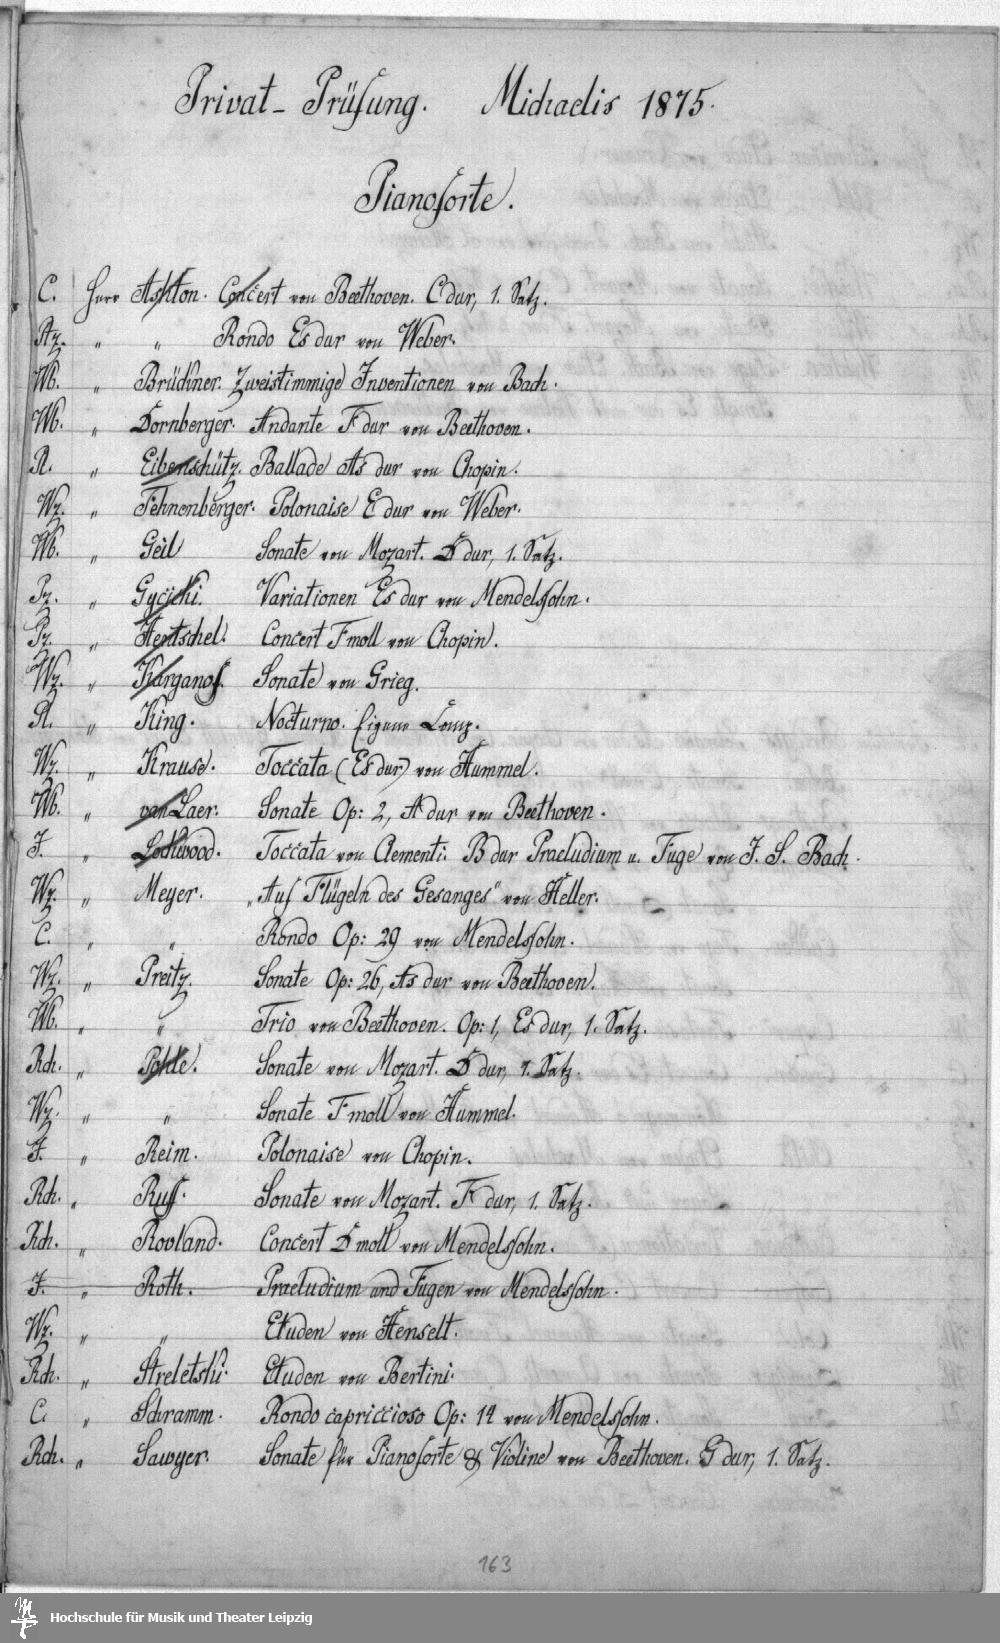 Privat-Prüfung. Michaelis 1875.
Pianoforte.
C. Herr Ashton. Concert von Beethoven. C dur, 1. Satz.
„ „ Rondo Es dur von Weber.
Wb. „ Brückner. Zweistimmige Inventionen von Bach.
Wb. „ Dornberger. Andante F dur von Beethoven.
R. „ Eibenschütz. Ballade As dur von Chopin.
Wz. „ Fehnenberger. Polonaise E dur von Weber.
Wb. „ Geil Sonate von Mozart. D dur, 1. Satz.
Pz. „ Variationen Es dur von Mendelssohn.
Pz. „ Hentschel. Concert F moll von Chopin.
Wz. „ Karganoff. Sonate von Grieg.
R. „ King. Nocturno. Eigene Comp.
Wz. „ Krause. Toccata (Es dur) von Hummel.
Wb. „ van Laer. Sonate Op: 2, A dur von Beethoven.
J. „ Lockwood. Toccata von Clementi. B dur Praeludium u. Fuge von J. S. Bach.
Wz. „ Meyer. „Auf Flügeln des Gesanges" von Heller.
C. „ „ Rondo Op: 29 von Mendelssohn.
Wz. „ Preitz. Sonate Op: 26, As dur von Beethoven.
Wb. „ „ Trio von Beethoven. Op: 1, Es dur, 1. Satz.
Rch. „ Pohle. Sonate von Mozart. D dur, 1. Satz.
Wz. „ „ Sonate F moll von Hummel.
J. „ Reim. Polonaise von Chopin.
Rch. „ Ruff. Sonate von Mozart. F dur, 1. Satz.
Rch. „ Rowland. Concert D moll von Mendelssohn.
J. „ Roth. Praeludium und Fugen von Mendelssohn.
Wz. „ „ Etuden von Henselt.
Rch. „ Streletski. Etuden von Bertini.
C. „ Schramm. Rondo capriccioso Op: 14 von Mendelssohn.
Rch. „ Sawyer. Sonate für Pianoforte & Violine von Beethoven. G dur, 1. Satz.
163
Hochschule für Musik und Theater Leipzig